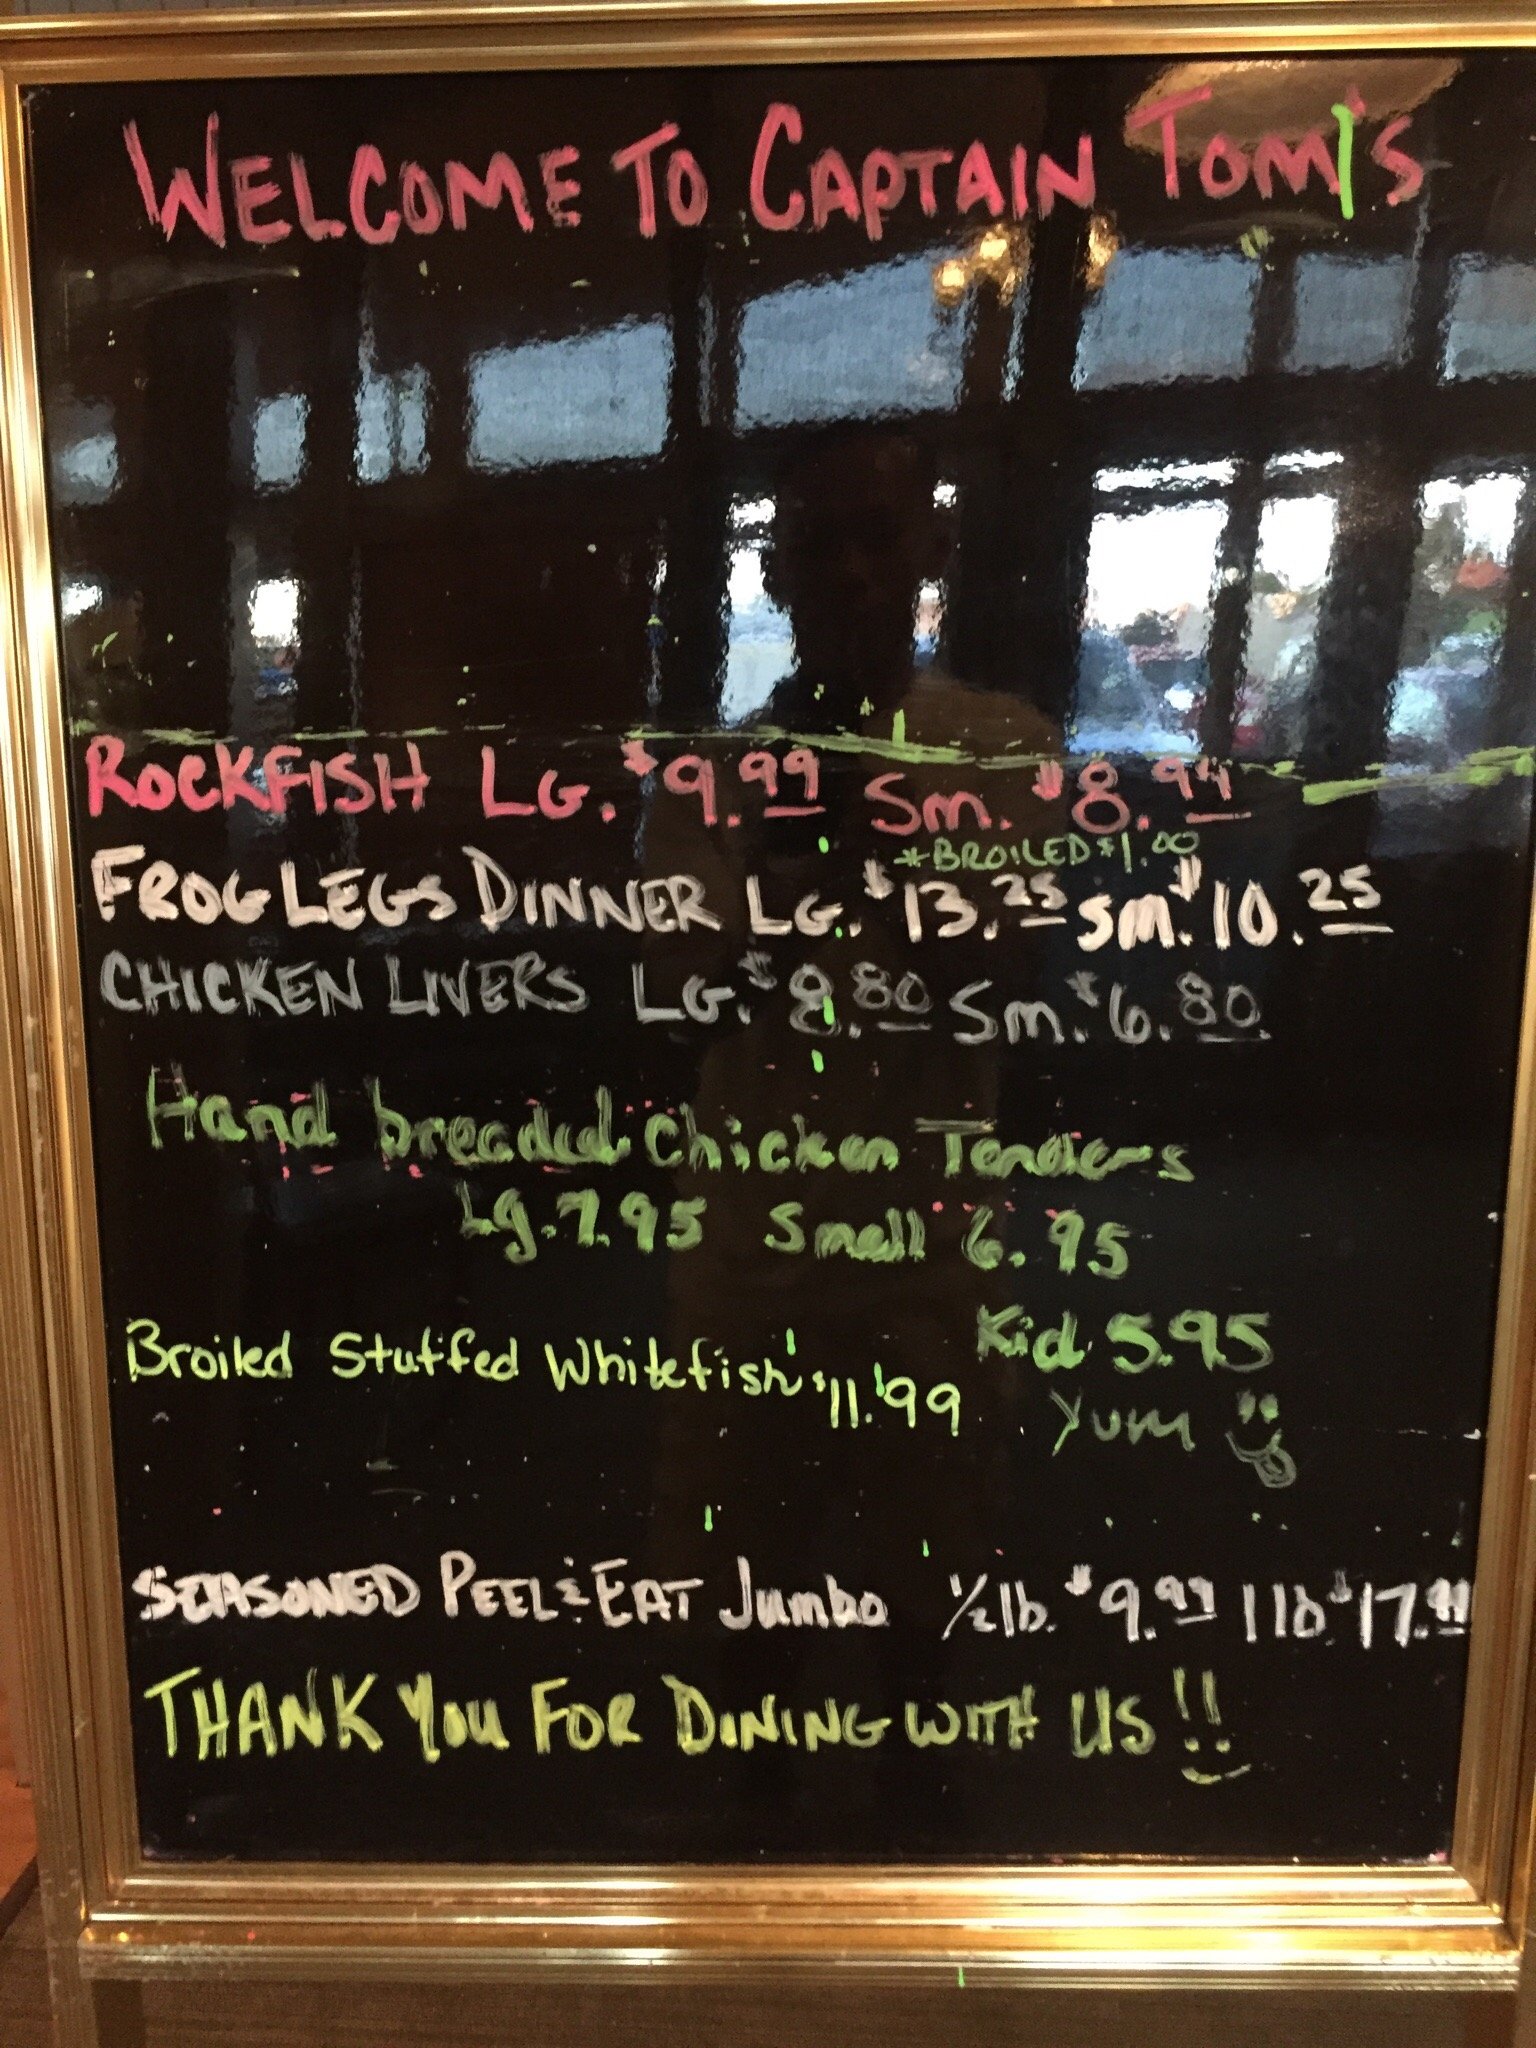 WELCOME TO CAPTAIN TOM'S
ROCKFISH LG. $9.99 Sm. $8.99
*BROILED $1.00
FROG LEGS DINNER LG. $13.25 Sm. $10.25
CHICKEN LIVERS LG. $8.80 Sm. $6.80
Hand breaded Chicken Tenders
Lg. 7.95 Small 6.95
Kid 5.95
Yum
Broiled Stuffed Whitefish $11.99
SEASONED PEEL & EAT Jumbo 1/2 lb. $9.99 1 lb. $17.99
THANK YOU FOR DINING WITH US!!